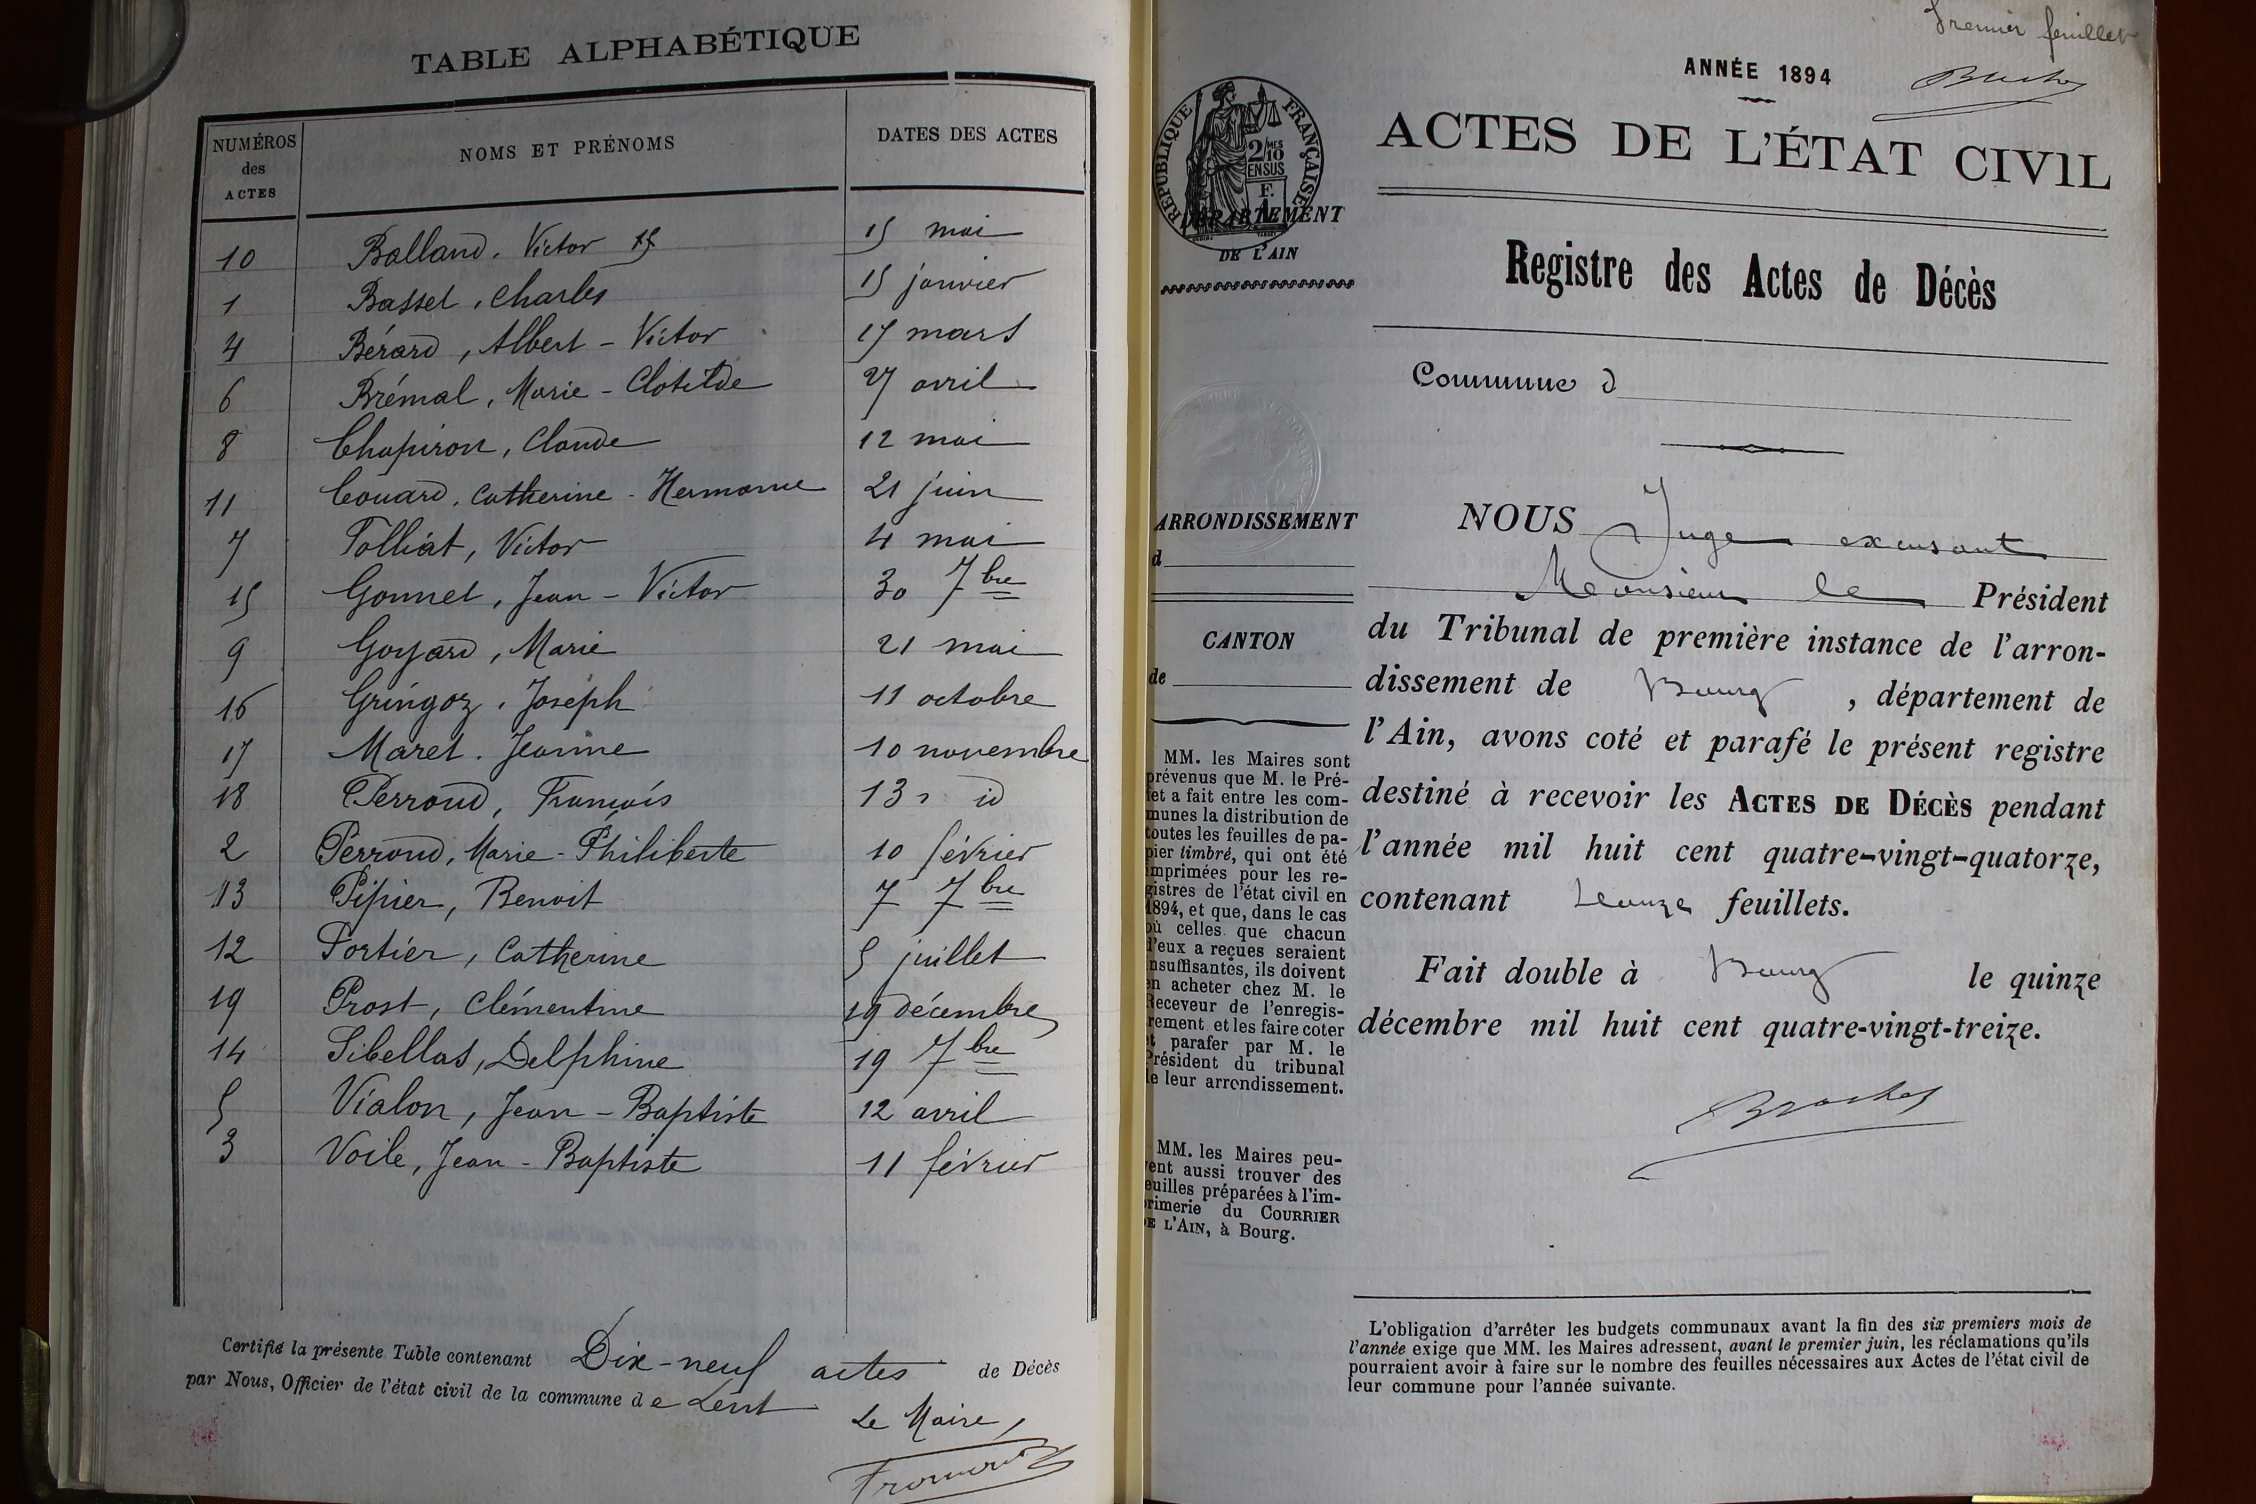 TABLE ALPHABÉTIQUE
NUMÉROS des ACTES
NOMS ET PRÉNOMS
DATES DES ACTES
10 Balland, Victor 15 mai
1 Basset, Charles 15 janvier
4 Bérard, Albert - Victor 17 mars
6 Brémal, Marie - Clotilde 27 avril
8 Chapiron, Claude 12 mai
11 Couard, Catherine - Hermance 21 juin
7 Folliat, Victor 4 mai
15 Gonnet, Jean - Victor 30 7bre
9 Goyard, Marie 21 mai
16 Gringoz, Joseph 11 octobre
17 Maret, Jeanne 10 novembre
18 Perroud, François 13 id
2 Perroud, Marie - Philiberte 10 février
13 Pipier, Benoit 7 7bre
12 Portier, Catherine 5 juillet
19 Prost, Clémentine 19 décembre
14 Sibellas, Delphine 19 7bre
5 Vialon, Jean - Baptiste 12 avril
3 Voile, Jean - Baptiste 11 février
Certifié la présente Table contenant Dix-neuf actes de Décès
par Nous, Officier de l'état civil de la commune de Lent
Le Maire,
Premier feuillet
ANNÉE 1894
RÉPUBLIQUE FRANÇAISE
2/10 MES
EN SUS
ACTES DE L'ÉTAT CIVIL
DÉPARTEMENT
DE L'AIN
Registre des Actes de Décès
Commune d
ARRONDISSEMENT
d
CANTON
de
MM. les Maires sont
prévenus que M. le Pré-
fet a fait entre les com-
munes la distribution de
toutes les feuilles de pa-
pier timbré, qui ont été
imprimées pour les re-
gistres de l'état civil en
1894, et que, dans le cas
où celles que chacun
d'eux a reçues seraient
insuffisantes, ils doivent
en acheter chez M. le
Receveur de l'enregis-
trement et les faire coter
et parafer par M. le
Président du tribunal
de leur arrondissement.
MM. les Maires peu-
vent aussi trouver des
feuilles préparées à l'im-
primerie du COURRIER
DE L'AIN, à Bourg.
NOUS Juge excusant
Monsieur le Président
du Tribunal de première instance de l'arron-
dissement de Bourg, département de
l'Ain, avons coté et parafé le présent registre
destiné à recevoir les ACTES DE DÉCÈS pendant
l'année mil huit cent quatre-vingt-quatorze,
contenant feuillets.
Fait double à Bourg le quinze
décembre mil huit cent quatre-vingt-treize.
L'obligation d'arrêter les budgets communaux avant la fin des six premiers mois de
l'année exige que MM. les Maires adressent, avant le premier juin, les réclamations qu'ils
pourraient avoir à faire sur le nombre des feuilles nécessaires aux Actes de l'état civil de
leur commune pour l'année suivante.